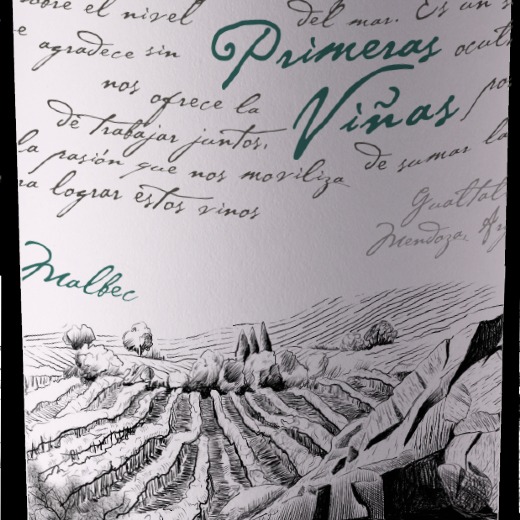 sobre el nivel del mar. Es un s
e agradece sin Primeras ocult
nos ofrece la Viñas po
de trabajar juntos,
la pasión que nos moviliza de sumar la
ra lograr estos vinos
Gualtal
Mendoza, Ar
Malbec